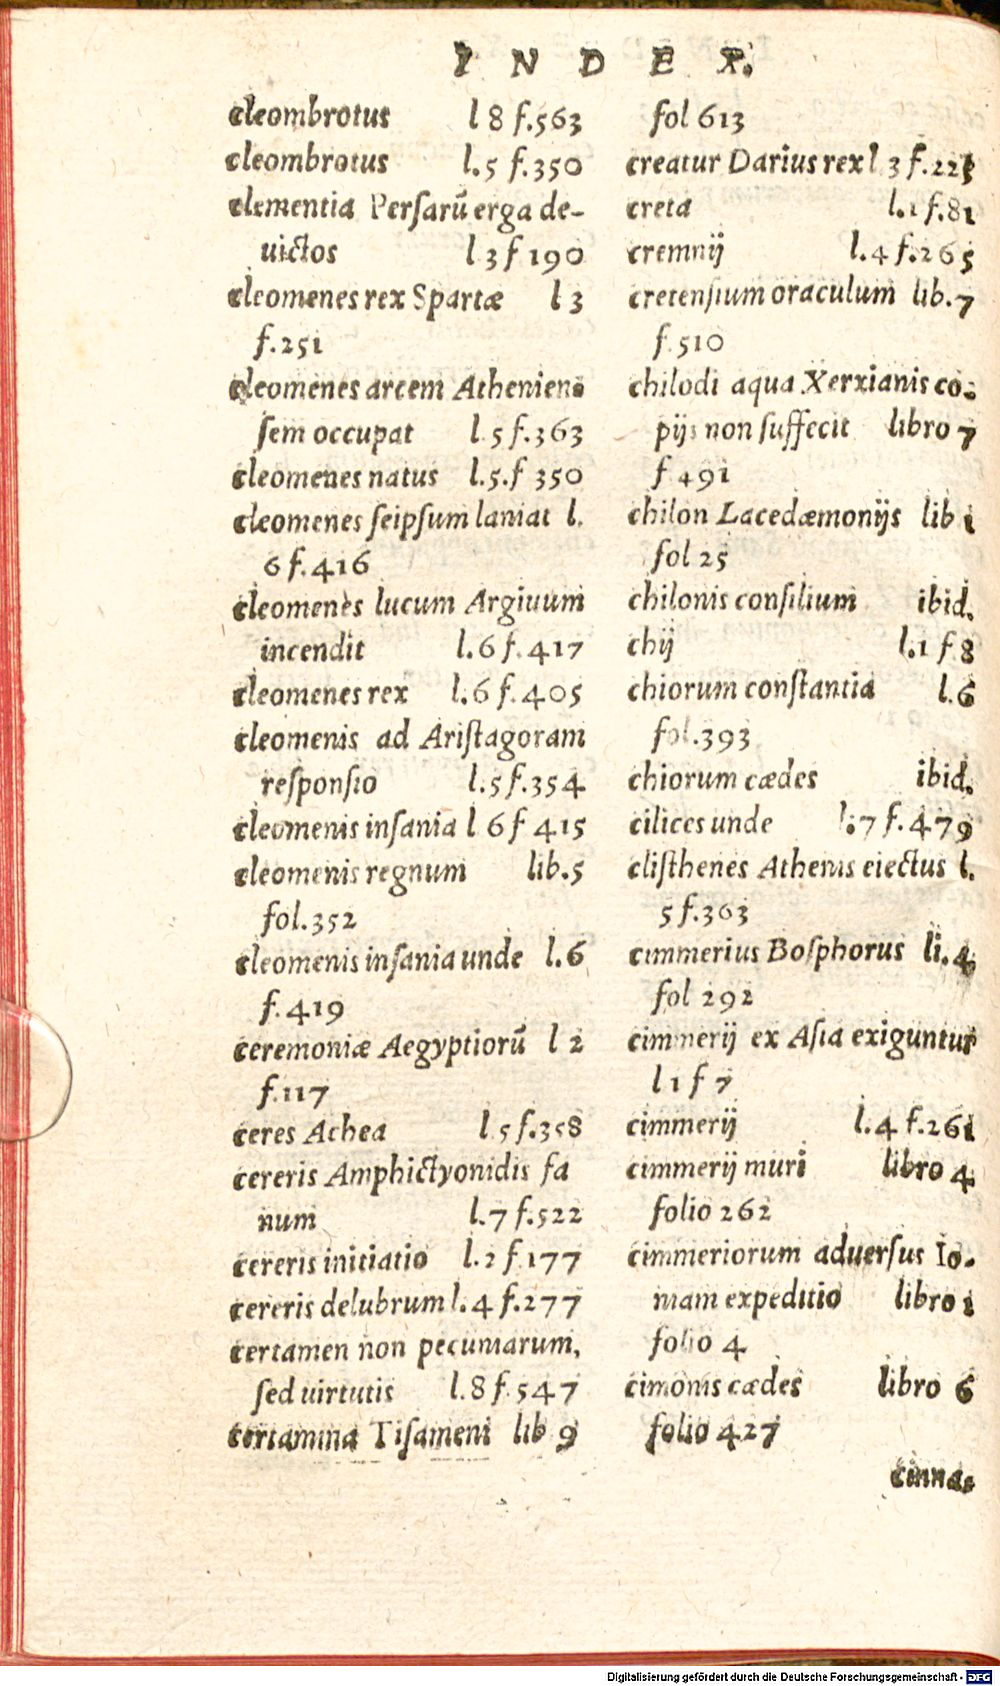 INDEX.
cleombrotus l 8 f.563
cleombrotus l.5 f.350
clementia Persarũ erga de-
uictos l 3 f 190
cleomenes rex Spartæ l 3
f.251
cleomenes arcem Athenien-
sem occupat l 5 f.363
cleomenes natus l.5.f 350
cleomenes seipsum laniat l.
6 f.416
cleomenes lucum Argiuum
incendit l.6 f.417
cleomenes rex l.6 f.405
cleomenis ad Aristagoram
responsio l.5 f.354
cleomenis insania l 6 f 415
cleomenis regnum lib.5
fol.352
cleomenis insania unde l.6
f.419
ceremoniæ Aegyptiorũ l 2
f.117
ceres Achea l 5 f.358
cereris Amphictyonidis fa
num l.7 f.522
cereris initiatio l.2 f.177
cereris delubrum l.4 f.277
certamen non pecuniarum,
sed uirtutis l.8 f.547
certamina Tisameni lib 9
fol 613
creatur Darius rex l 3 f.223
creta l.1 f.81
cremnij l.4 f.265
cretensium oraculum lib.7
f.510
chilodi aqua Xerxianis co-
pijs non suffecit libro 7
f 491
chilon Lacedæmonijs lib 1
fol 25
chilonis consilium ibid.
chij l.1 f 8
chiorum constantia l.6
fol.393
chiorum cædes ibid.
cilices unde l.7 f.479
clisthenes Athenis eiectus l.
5 f.363
cimmerius Bosphorus li.4
fol 292
cimmerij ex Asia exiguntur
l 1 f 7
cimmerij l.4 f.261
cimmerij muri libro 4
folio 262
cimmeriorum aduersus Io-
niam expeditio libro 1
folio 4
cimonis cædes libro 6
folio 427
cinna-
Digitalisierung gefördert durch die Deutsche Forschungsgemeinschaft - DFG